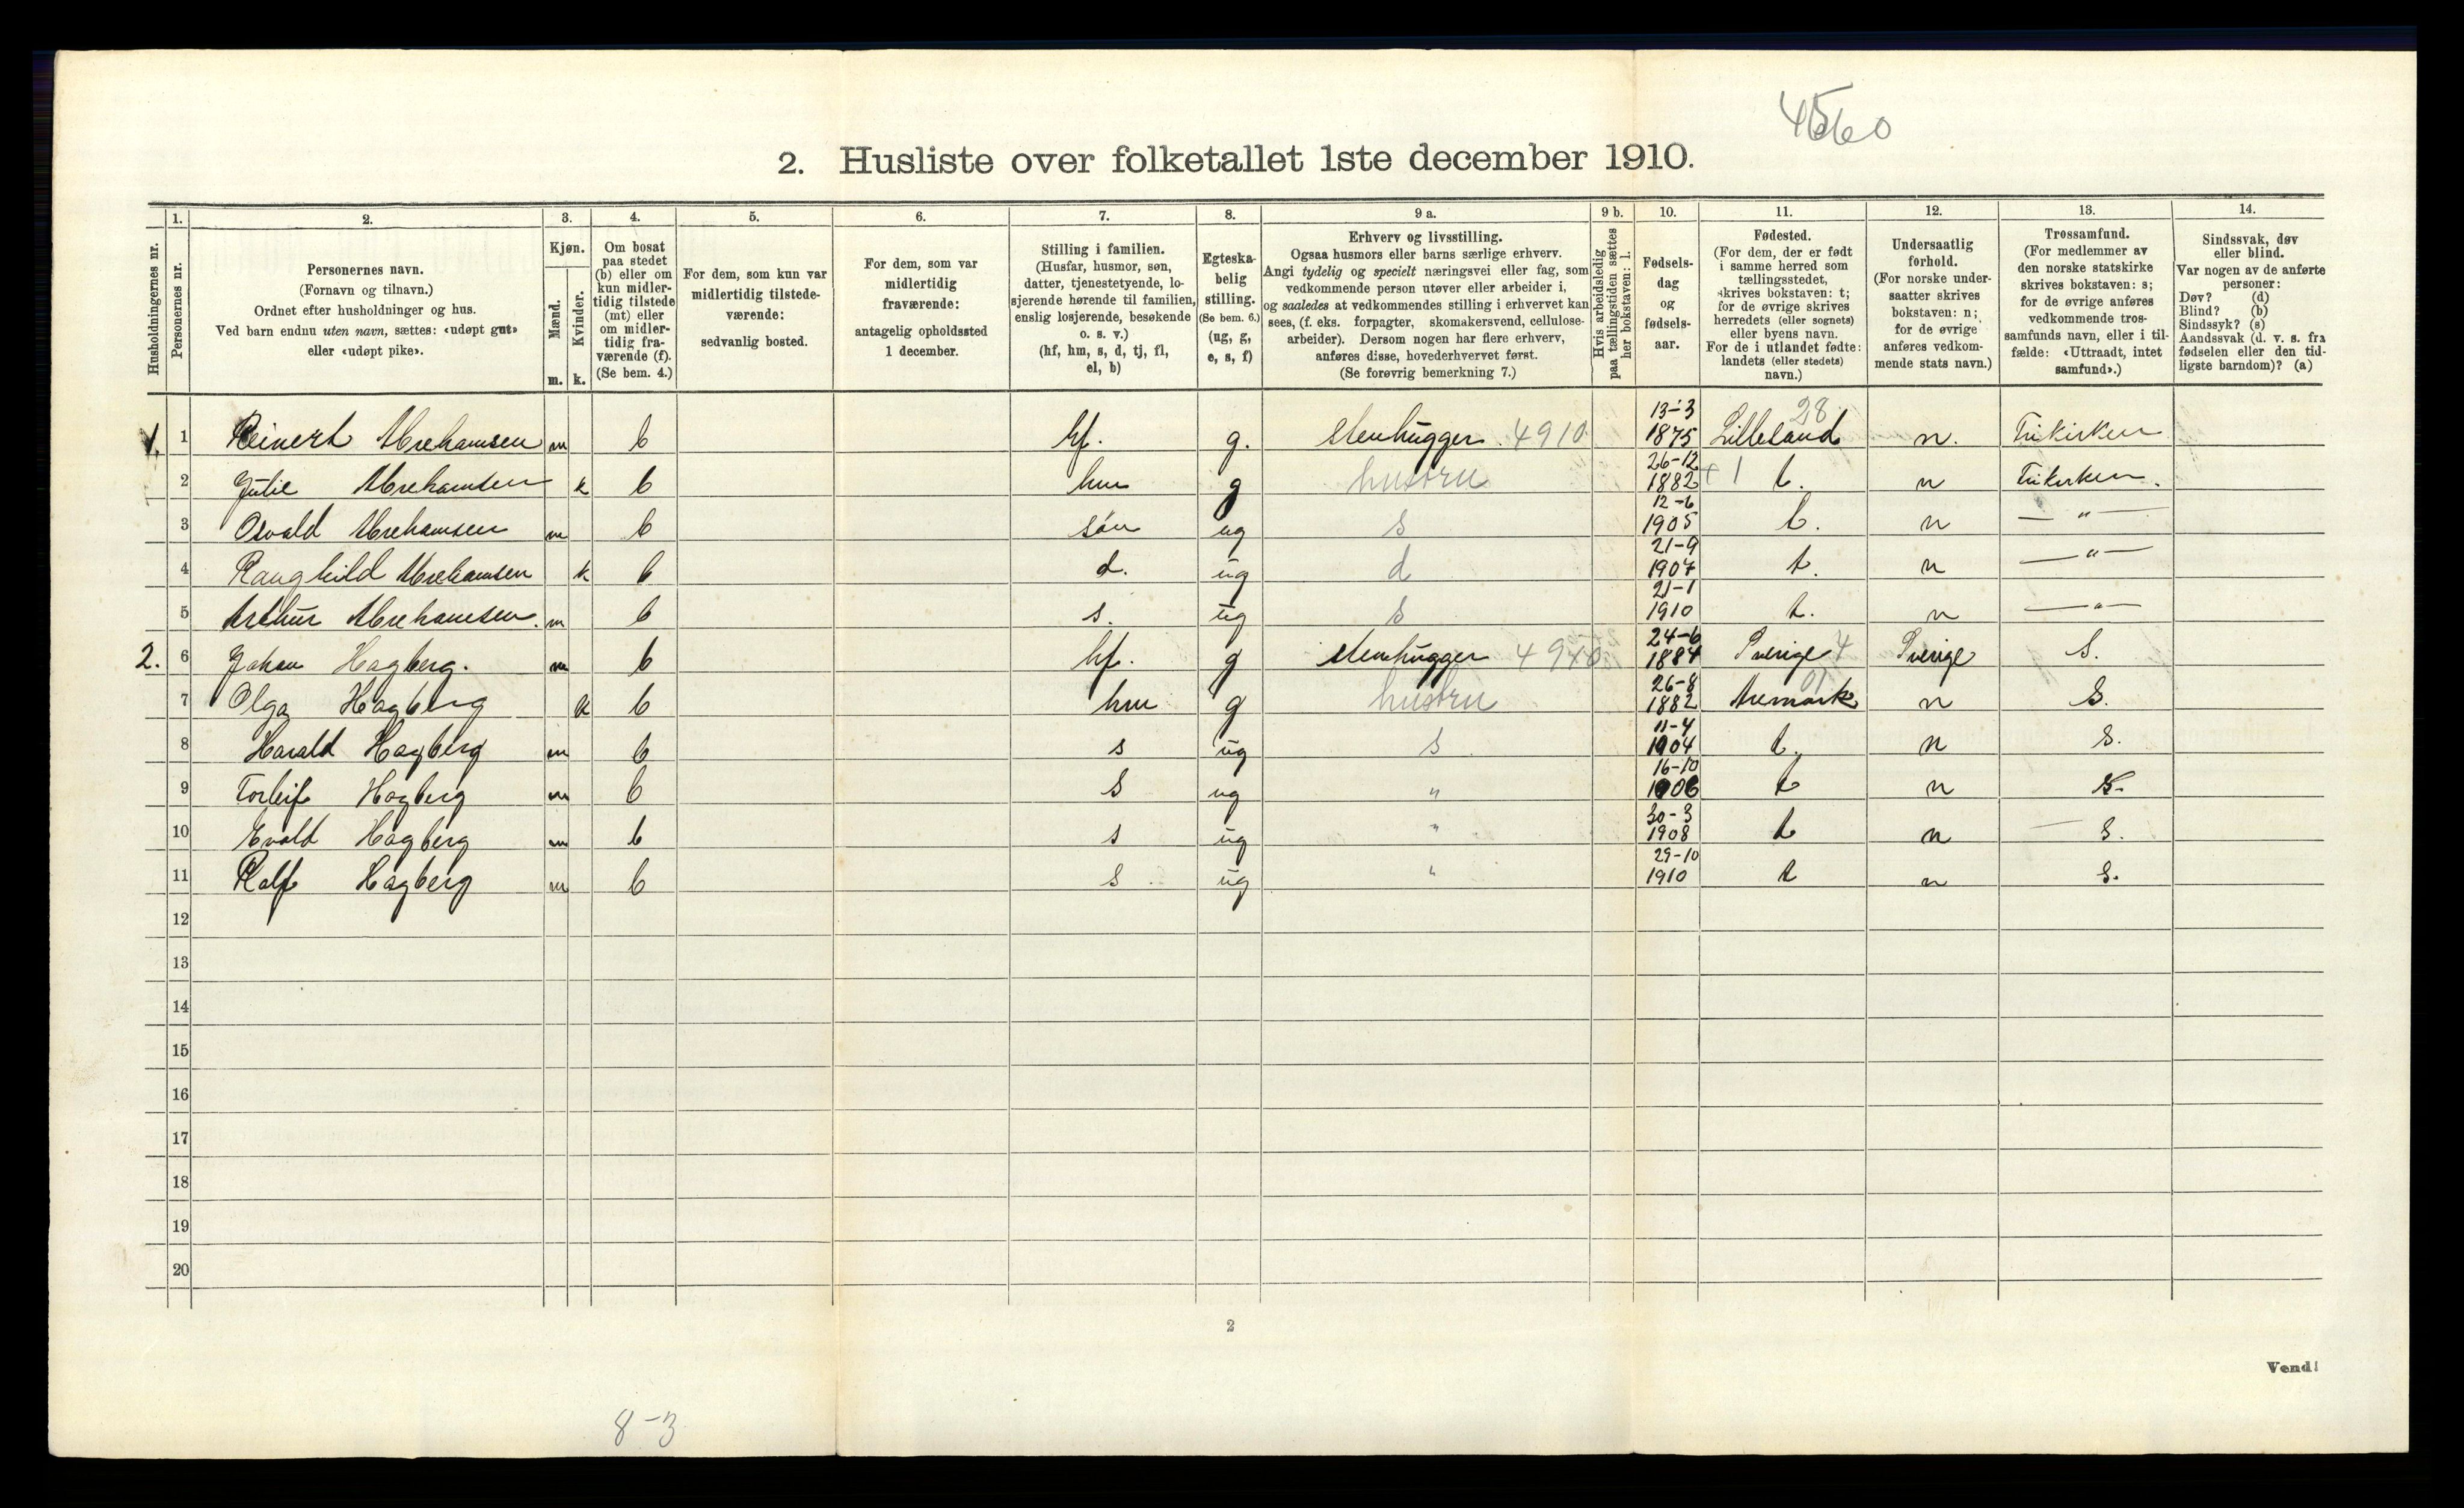 4560
2. Husliste over folketallet 1ste december 1910.
Husholdningernes nr.
1.
Personernes nr.
2.
Personernes navn.
(Fornavn og tilnavn.)
Ordnet efter husholdninger og hus.
Ved barn endnu uten navn, sættes: «udøpt gut»
eller «udøpt pike».
3.
Kjøn.
Mænd.
Kvinder.
m. k.
4.
Om bosat
paa stedet
(b) eller om
kun midler-
tidig tilstede
(mt) eller
om midler-
tidig fra-
værende (f).
(Se bem. 4.)
5.
For dem, som kun var
midlertidig tilstede-
værende:
sedvanlig bosted.
6.
For dem, som var
midlertidig
fraværende:
antagelig opholdssted
1 december.
7.
Stilling i familien.
(Husfar, husmor, søn,
datter, tjenestetyende, lo-
sjerende hørende til familien,
enslig losjerende, besøkende
o. s. v.)
(hf, hm, s, d, tj, fl,
el, b)
8.
Egteska-
belig
stilling.
(Se bem. 6.)
(ug, g,
e, s, f)
9 a.
Erhverv og livsstilling.
Ogsaa husmors eller barns særlige erhverv.
Angi tydelig og specielt næringsvei eller fag, som
vedkommende person utøver eller arbeider i,
og saaledes at vedkommendes stilling i erhvervet kan
sees, (f. eks. forpagter, skomakersvend, cellulose-
arbeider). Dersom nogen har flere erhverv,
anføres disse, hovederhvervet først.
(Se forøvrig bemerkning 7.)
9 b.
Hvis arbeidsledig
paa tællingstiden sættes
her bokstaven: l.
10.
Fødsels-
dag
og
fødsels-
aar.
11.
Fødested.
(For dem, der er født
i samme herred som
tællingsstedet,
skrives bokstaven: t;
for de øvrige skrives
herredets (eller sognets)
eller byens navn.
For de i utlandet fødte:
landets (eller stedets)
navn.)
12.
Undersaatlig
forhold.
(For norske under-
saatter skrives
bokstaven: n;
for de øvrige
anføres vedkom-
mende stats navn.)
13.
Trossamfund.
(For medlemmer av
den norske statskirke
skrives bokstaven: s;
for de øvrige anføres
vedkommende tros-
samfunds navn, eller i til-
fælde: «Uttraadt, intet
samfund».)
14.
Sindssvak, døv
eller blind.
Var nogen av de anførte
personer:
Døv? (d)
Blind? (b)
Sindssyk? (s)
Aandssvak (d. v. s. fra
fødselen eller den tid-
ligste barndom)? (a)
1. 1 Reinert Abrehamsen m b hf. g. stenhugger 4910 13-3 1875 Lillesand 28 n. Frikirken
2 Julie Abrehamsen k b hm g hustru 26-12 1882 +1 t. n Frikirken.
3 Osvald Abrehamsen m b søn ug s 12-6 1905 t. n — " —
4 Raughild Abrehamsen k b d. ug d 21-9 1907 t. n — " —
5 Arthur Abrehamsen. m b s. ug s 21-1 1910 t. n — " —
2. 6 Johan Hagberg. m b hf. g stenhugger 4940 24-6 1884 Sverige 4 Sverige S.
7 Olga Hagberg k b hm g hustru 26-8 1882 Aremark 01 n S.
8 Harald Hagberg m b s ug s 11-4 1904 t. n S.
9 Torleif Hagberg m b s ug " 16-10 1906 t n S.
10 Evald Hagberg m b s ug " 30-3 1908 t n S.
11 Ralf Hagberg m b s ug " 29-10 1910 t n S.
12
13
14
15
16
17
18
19
20
2
Vend!
8-3